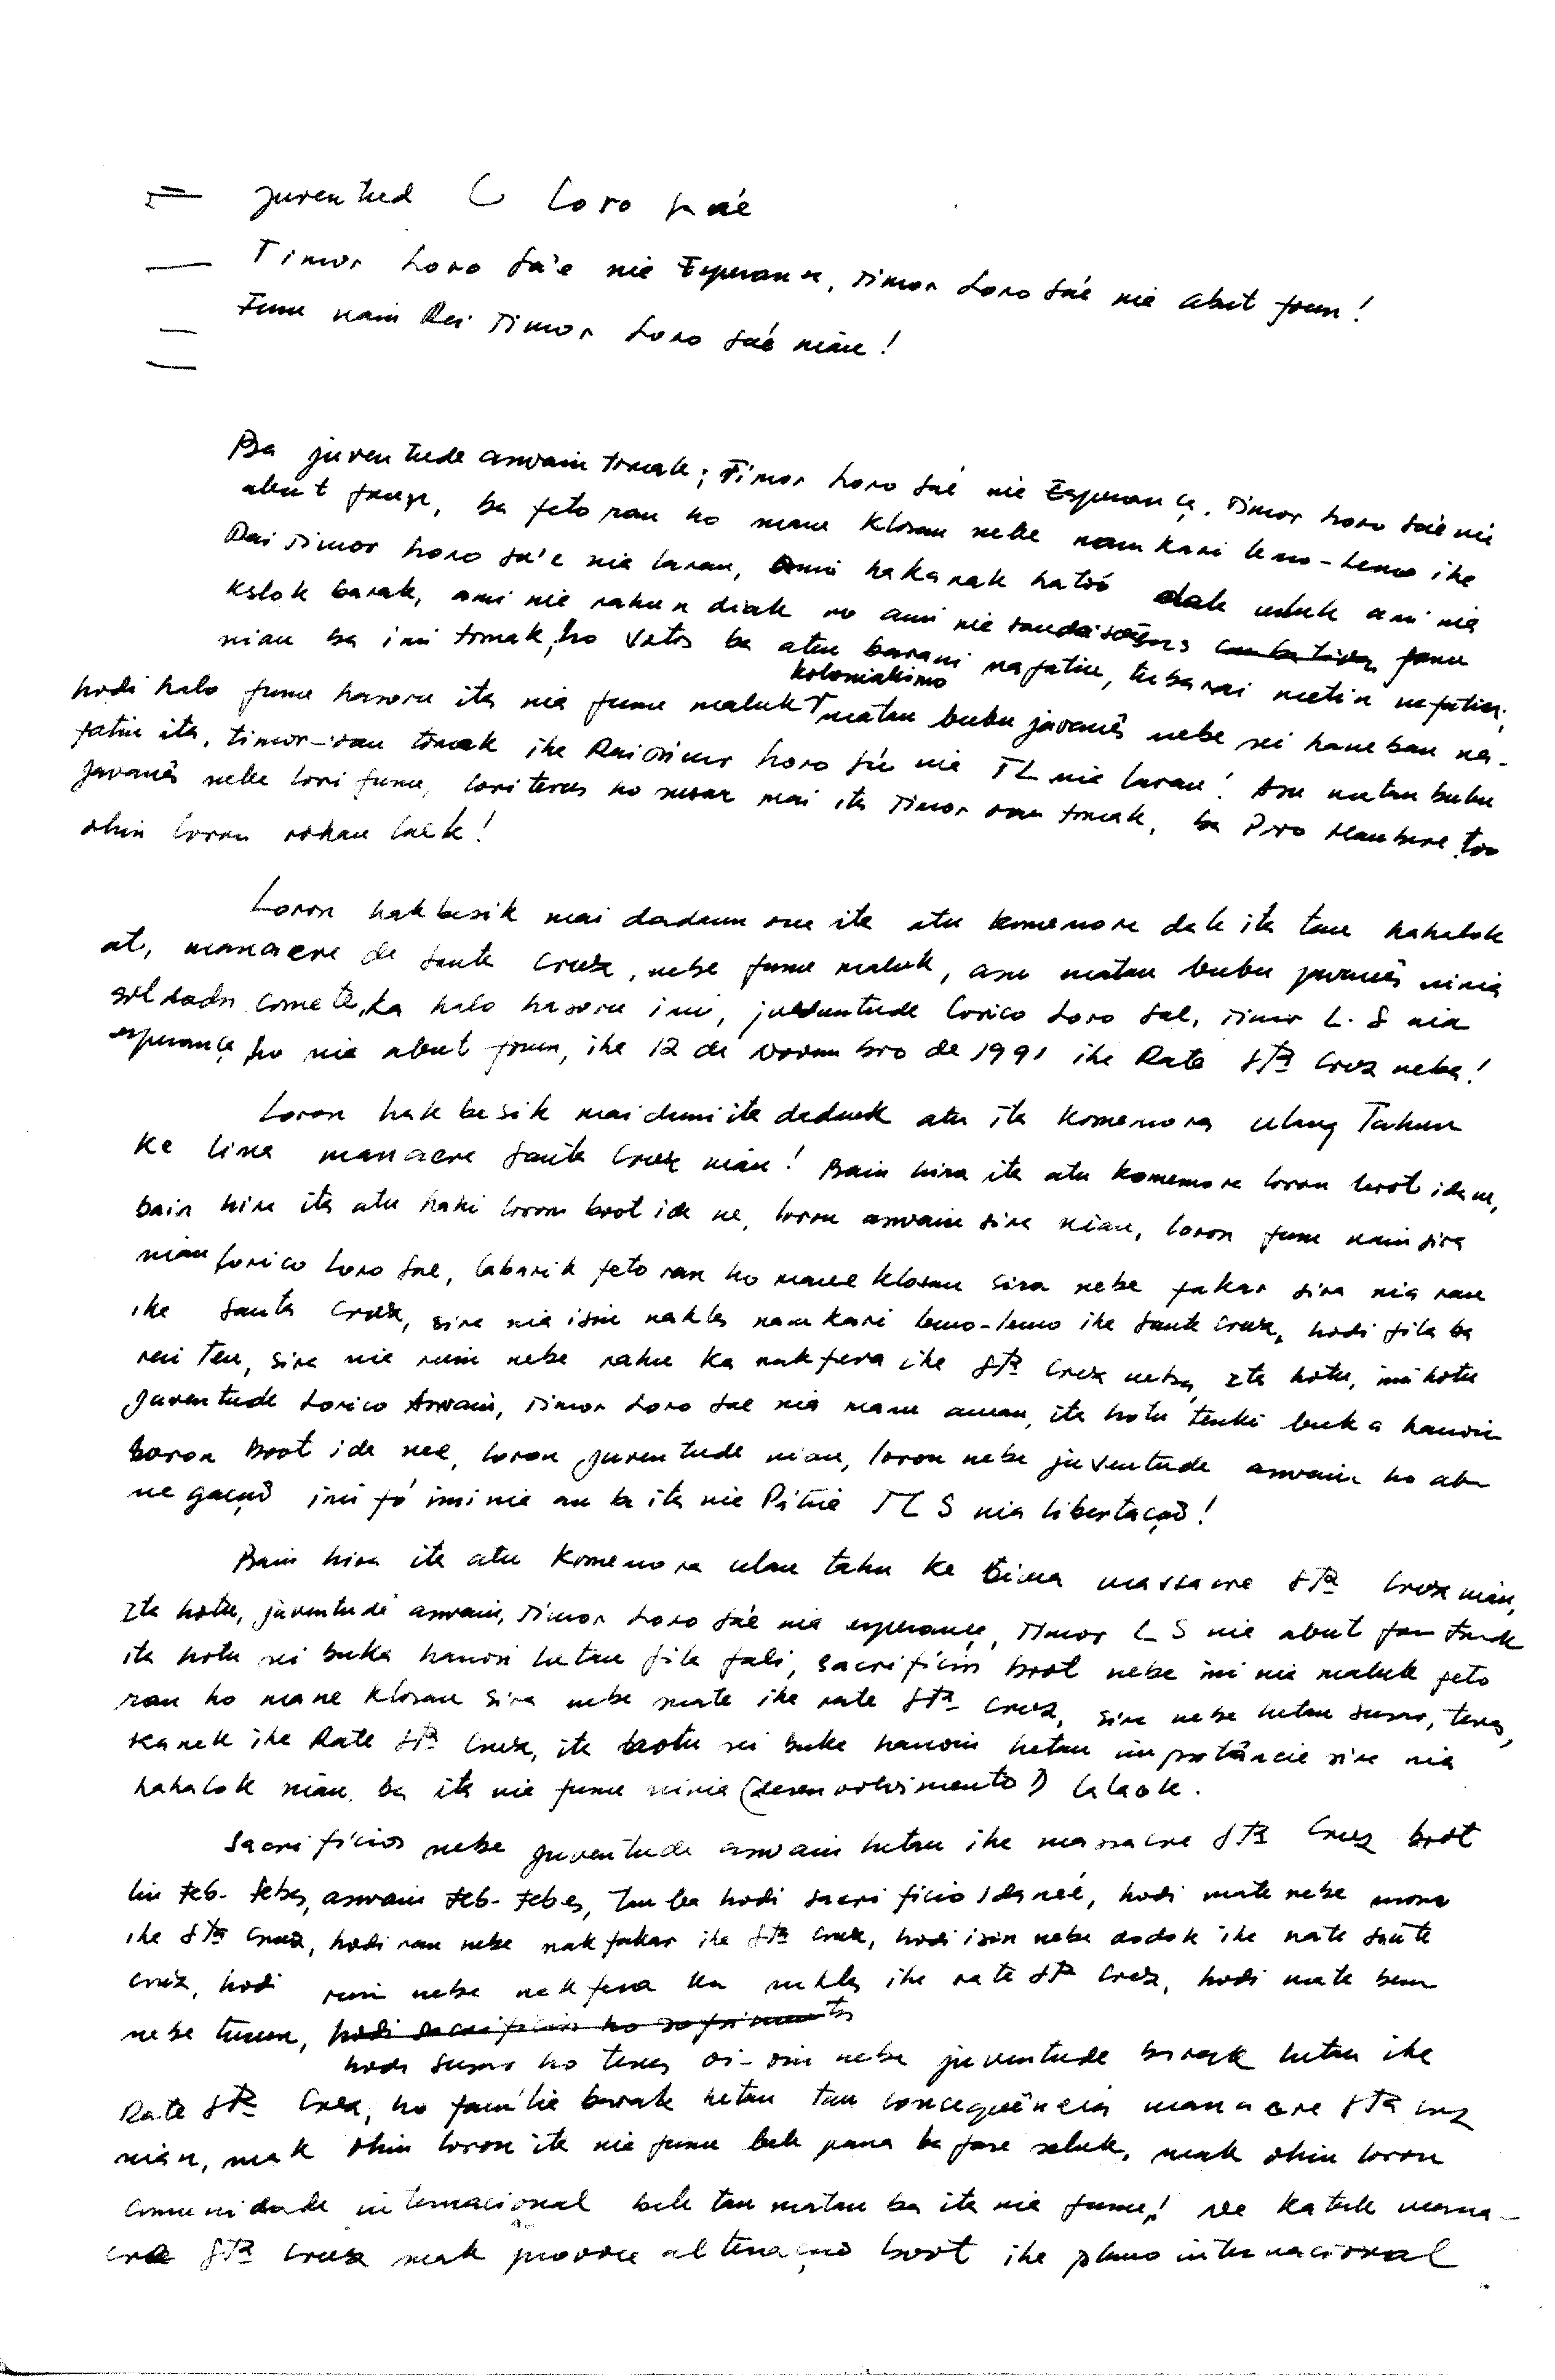 Juventud Loro Sa'e
Timor Loro Sa'e nia Esperança, Timor Loro Sa'e nia abut foun!
Funu nain Rai Timor Loro Sa'e nian!
Ba juventude aswain tomak; Timor Loro Sa'e nia Esperança, Timor Loro Sa'e nia
abut foun, ba feto ran ho mane klosan nebe namkari lemo-lemo ihe
Rai Timor Loro Sa'e nia laran, Ami hakarak hato'o uluk ami nia
kslok barak, ami nia rahun diak no ami nia saudasoens funu
nian ba imi tomak, ho votos ba atu barani nafatin, tubarai metin nafatin,
kolonialismo
hodi halo funu hasoru ita nia funu maluk matan bubu javanês nebe sei hanehan na-
fatin ita, timor-oan tomak ihe Rai Timor Loro Sa'e nia TL nia laran! Asu matan bubu
javanês nebe lori funu, lori terus ho susar mai ita Timor oan tomak, ba Povo Maubere too
ohin loron rohan laek!
Loron hakbesik mai dadaun ona ita atu komemora ita tan hahalok
at, massacre de Santa Cruz, nebe funu maluk, asu matan bubu javanês ninia
soldadu comete, ka halo hasoru imi, juventude lorico Loro Sae, Timor L.S nia
esperança ho nia abut foun, ihe 12 de Novembro de 1991 ihe Rate Sta Cruz neba!
Loron hakbesik mai dimi ita daduuk atu ita komemora ulang Tahun
ke lima massacre Santa Cruz nian! Bain hira ita atu komemora loron boot ida ne,
bain hira ita atu hahi loron boot ida ne, loron aswain sira nian, loron funu nain sira
nian lorico Loro Sae, labarik feto ran ho mane klosan sira nebe fakar sira nia ran
ihe Santa Cruz, sira nia isin nakles namkari lemo-lemo ihe Santa Cruz, hodi fila ba
rai ten, sira nia ruin nebe rahu ka nakfera ihe Sta Cruz neba, ita hotu, imi hotu
juventude Lorico Aswain, Timor Loro Sae nia manu aman, ita hotu tenki buka hanoin
Loron boot ida nee, loron juventude nian, loron nebe juventude aswain ho ab
negação imi fó imi nia an ba ita nia Pátria TLS nia libertação!
Bain hira ita atu komemora ulan tahu ke lima massacre Sta Cruz nian,
ita hotu, juventude aswain, Timor Loro Sa'e nia esperança, Timor L S nia abut foun tomak
ita hotu sei buka hanoin hetan fila fali, sacrifícios boot nebe imi nia maluk feto
ran ho mane klosan sira nebe mate ihe rate Sta Cruz, sira nebe hetan susar, terus,
kanek ihe Rate Sta Cruz, ita hotu sei buka hanoin hetan importância sira nia
hahalok nian, ba ita nia funu ninia (desenvolvimento) lalaok.
Sacrifícios nebe juventude aswain hetan ihe massacre Sta Cruz boot
liu teb-tebes, aswain teb-tebes, tan ba hodi sacrifício ida neé, hodi mate nebe mosu
ihe Sta Cruz, hodi ran nebe nakfakar ihe Sta Cruz, hodi isin nebe dodok ihe rate Santa
Cruz, hodi ruin nebe nakfera ka nakles ihe rate Sta Cruz, hodi mate ben
nebe turun, hodi sacrifícios ho sofrimentos
hodi susar ho terus oi-oin nebe juventude barak hetan ihe
Rate Sta Cruz, ho família barak hetan tan consequência massacre Sta Cruz
nian, mak ohin loron ita nia funu bele pana ba fase seluk, mak ohin loron
comunidade internacional bele tau matan ba ita nia funu! Ne katak massa-
cre Sta Cruz mak provoca alteração boot ihe plano internacional